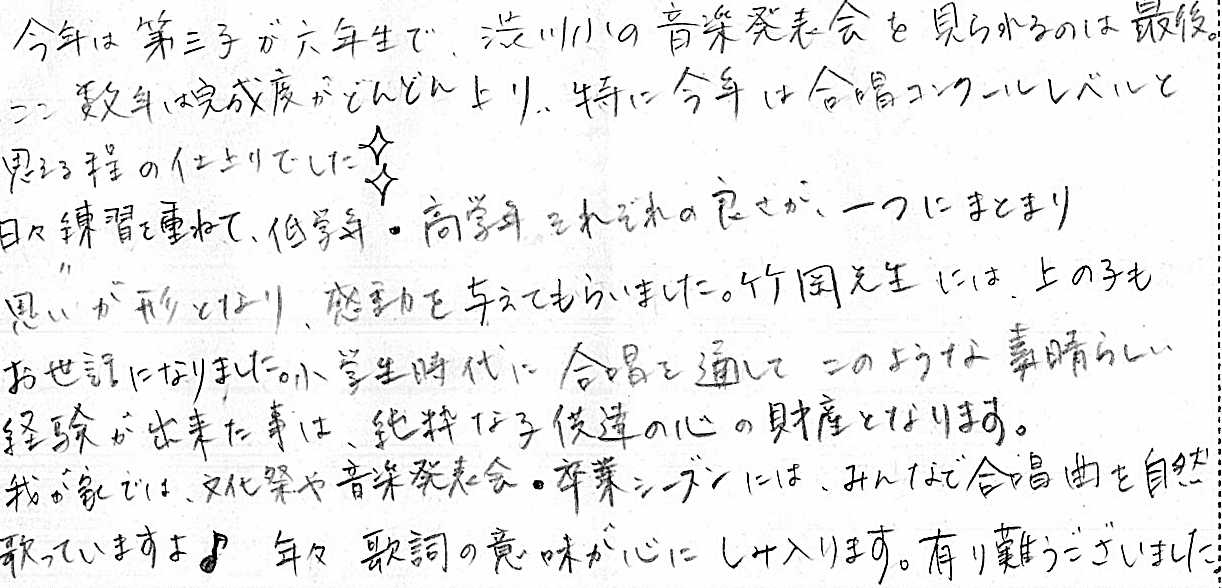 今年は第三子が六年生で、渋川小の音楽発表会を見られるのは最後。
ここ数年は完成度がどんどん上り、特に今年は合唱コンクールレベルと
思える程の仕上りでした✧✧
日々練習を重ねて、低学年・高学年それぞれの良さが、一つにまとまり
"思い"が形となり、感動を与えてもらいました。竹岡先生には、上の子も
お世話になりました。小学生時代に合唱を通してこのような素晴らしい
経験が出来た事は、純粋な子供達の心の財産となります。
我が家では、文化祭や音楽発表会・卒業シーズンには、みんなで合唱曲を自然
歌っていますよ♪ 年々歌詞の意味が心にしみ入ります。有り難うございました。